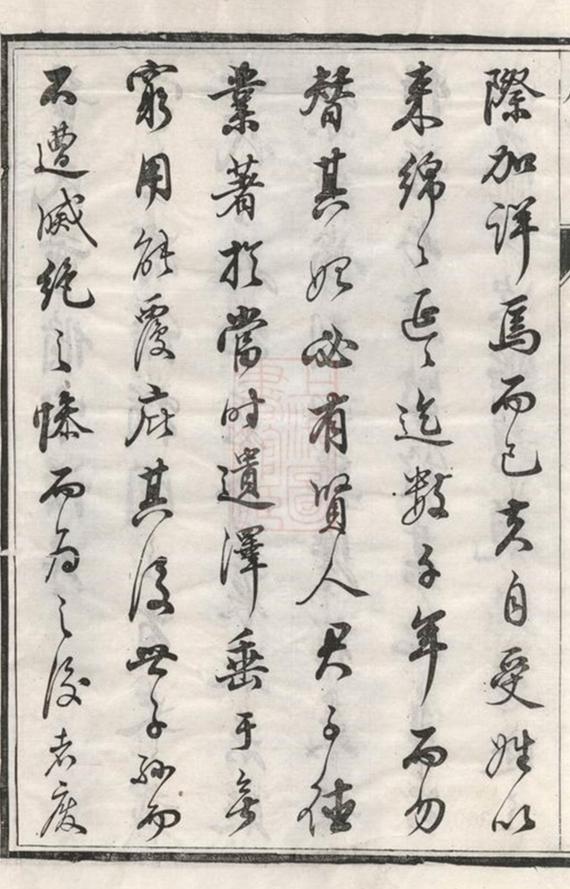 際加詳焉而已夫自受姓以
来綿々延々迄數千年而勿
替其始必有賢人君子德
業著於當时遺澤垂于無
窮用能覆庇其後世子孫而
不遭滅絶之慘而為之後者廢